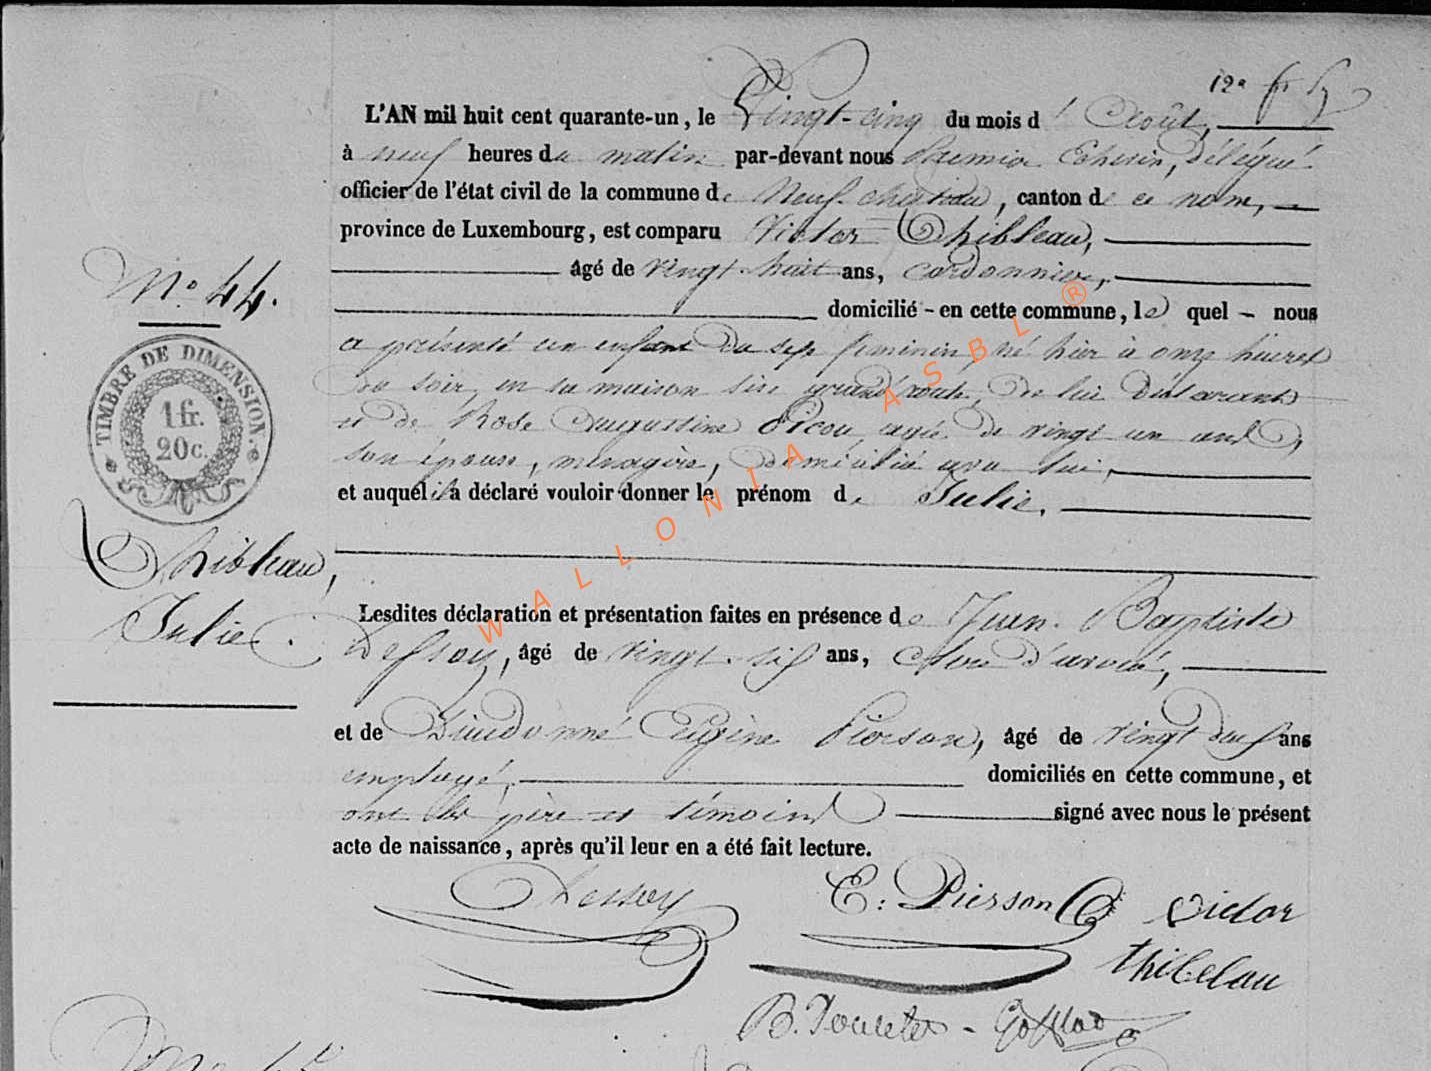 12e
L'AN mil huit cent quarante-un, le Vingt-cinq du mois d'Août,
à neuf heures du matin par-devant nous Premier Echevin, délégué
officier de l'état civil de la commune de Neufchateau, canton de ce nom,
province de Luxembourg, est comparu Victor Thibleau,
âgé de vingt-huit ans, cordonnier,
domicilié - en cette commune, lequel - nous
a présenté un enfant du sexe feminin, né hier à onze heures
du soir, en sa maison sise grand'route, de lui déclarant
et de Rose Augustine Picou, agée de vingt un ans,
son épouse, menagère, domiciliée avec lui,
et auquel il a déclaré vouloir donner le prénom de Julie.
No 44.
TIMBRE DE DIMENSION.
1 fr.
20 c.
Thibleau,
Julie.
Lesdites déclaration et présentation faites en présence de Jean-Baptiste
Dessoy, âgé de vingt-six ans, clerc d'avoué,
et de Dieudonné Eugène Pierson, âgé de vingt deux ans
employé, domiciliés en cette commune, et
ont les père et témoins signé avec nous le présent
acte de naissance, après qu'il leur en a été fait lecture.
Dessoy
E. Pierson
Victor
thibelau
WALLONIA ASBL ®